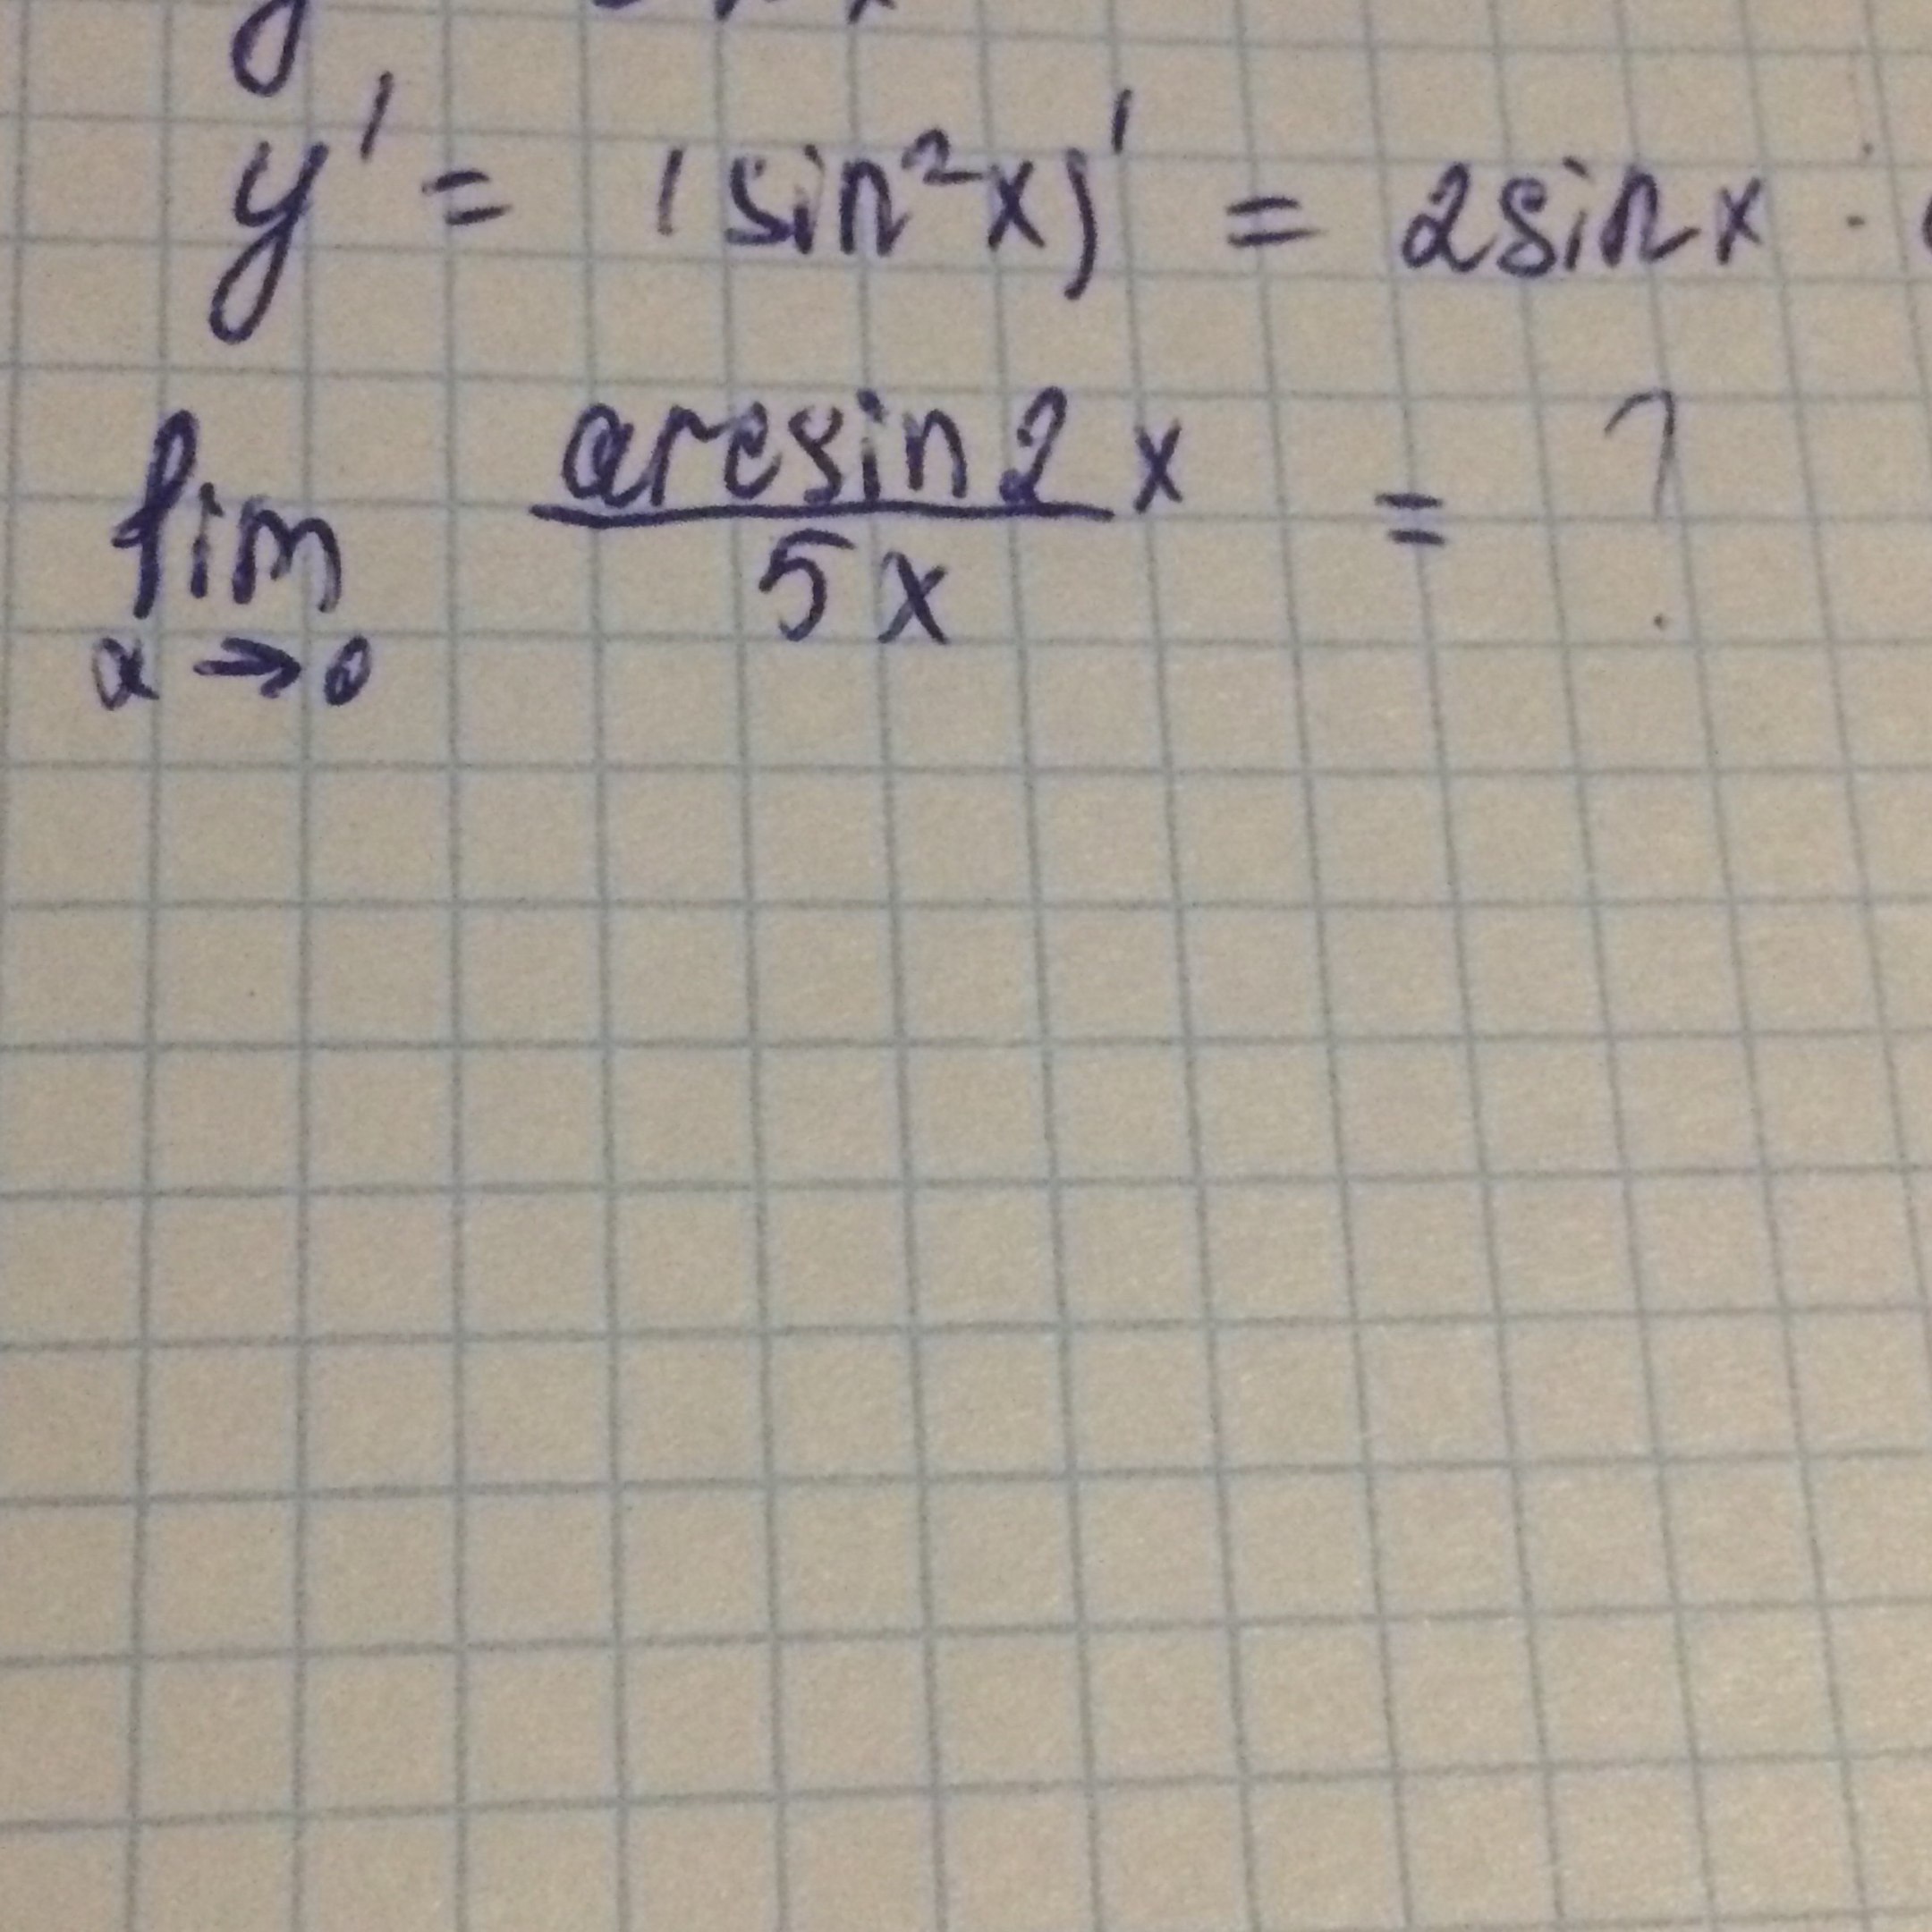 y' = (sin²x)' = 2sinx ·
lim arcsin2x / 5x = ?
x → 0